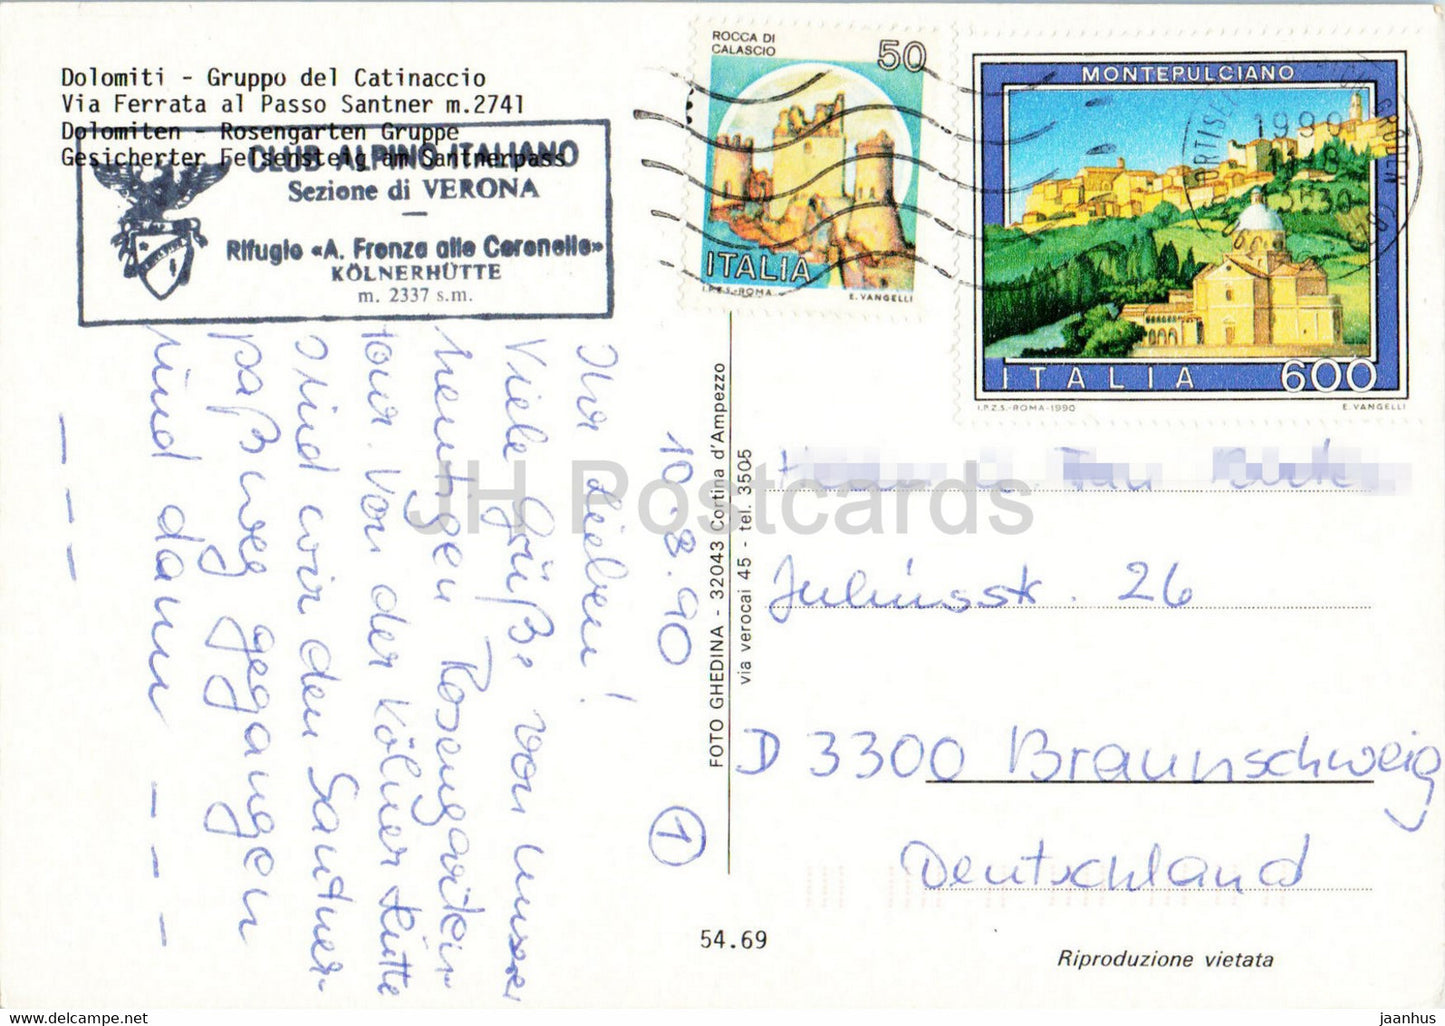 Dolomiti - Gruppo del Catinaccio
Via Ferrata al Passo Santner m.2741
Dolomiten - Rosengarten Gruppe
Gesicherter Felsensteig am Santnerpass
CLUB ALPINO ITALIANO
Sezione di VERONA
Rifugio «A. Fronza alle Coronelle»
KÖLNERHÜTTE
m. 2337 s.m.
ROCCA DI
CALASCIO
50
ITALIA
I.P.Z.S.-ROMA
E. VANGELLI
MONTEPULCIANO
ITALIA
600
I.P.Z.S.-ROMA-1990
E. VANGELLI
1990
10.8.90
Ihr Lieben!
Viele Grüße von unserer
heutigen Rosengarten
tour. Von der Kölner Hütte
sind wir den Santner-
paßweg gegangen
und dann - - -
- - -
1
FOTO GHEDINA - 32043 Cortina d'Ampezzo
via verocai 45 - tel. 3505
JH Postcards
Juliusstr. 26
D 3300 Braunschweig
Deutschland
54.69
Riproduzione vietata
HipPostcard.com
jaanhus